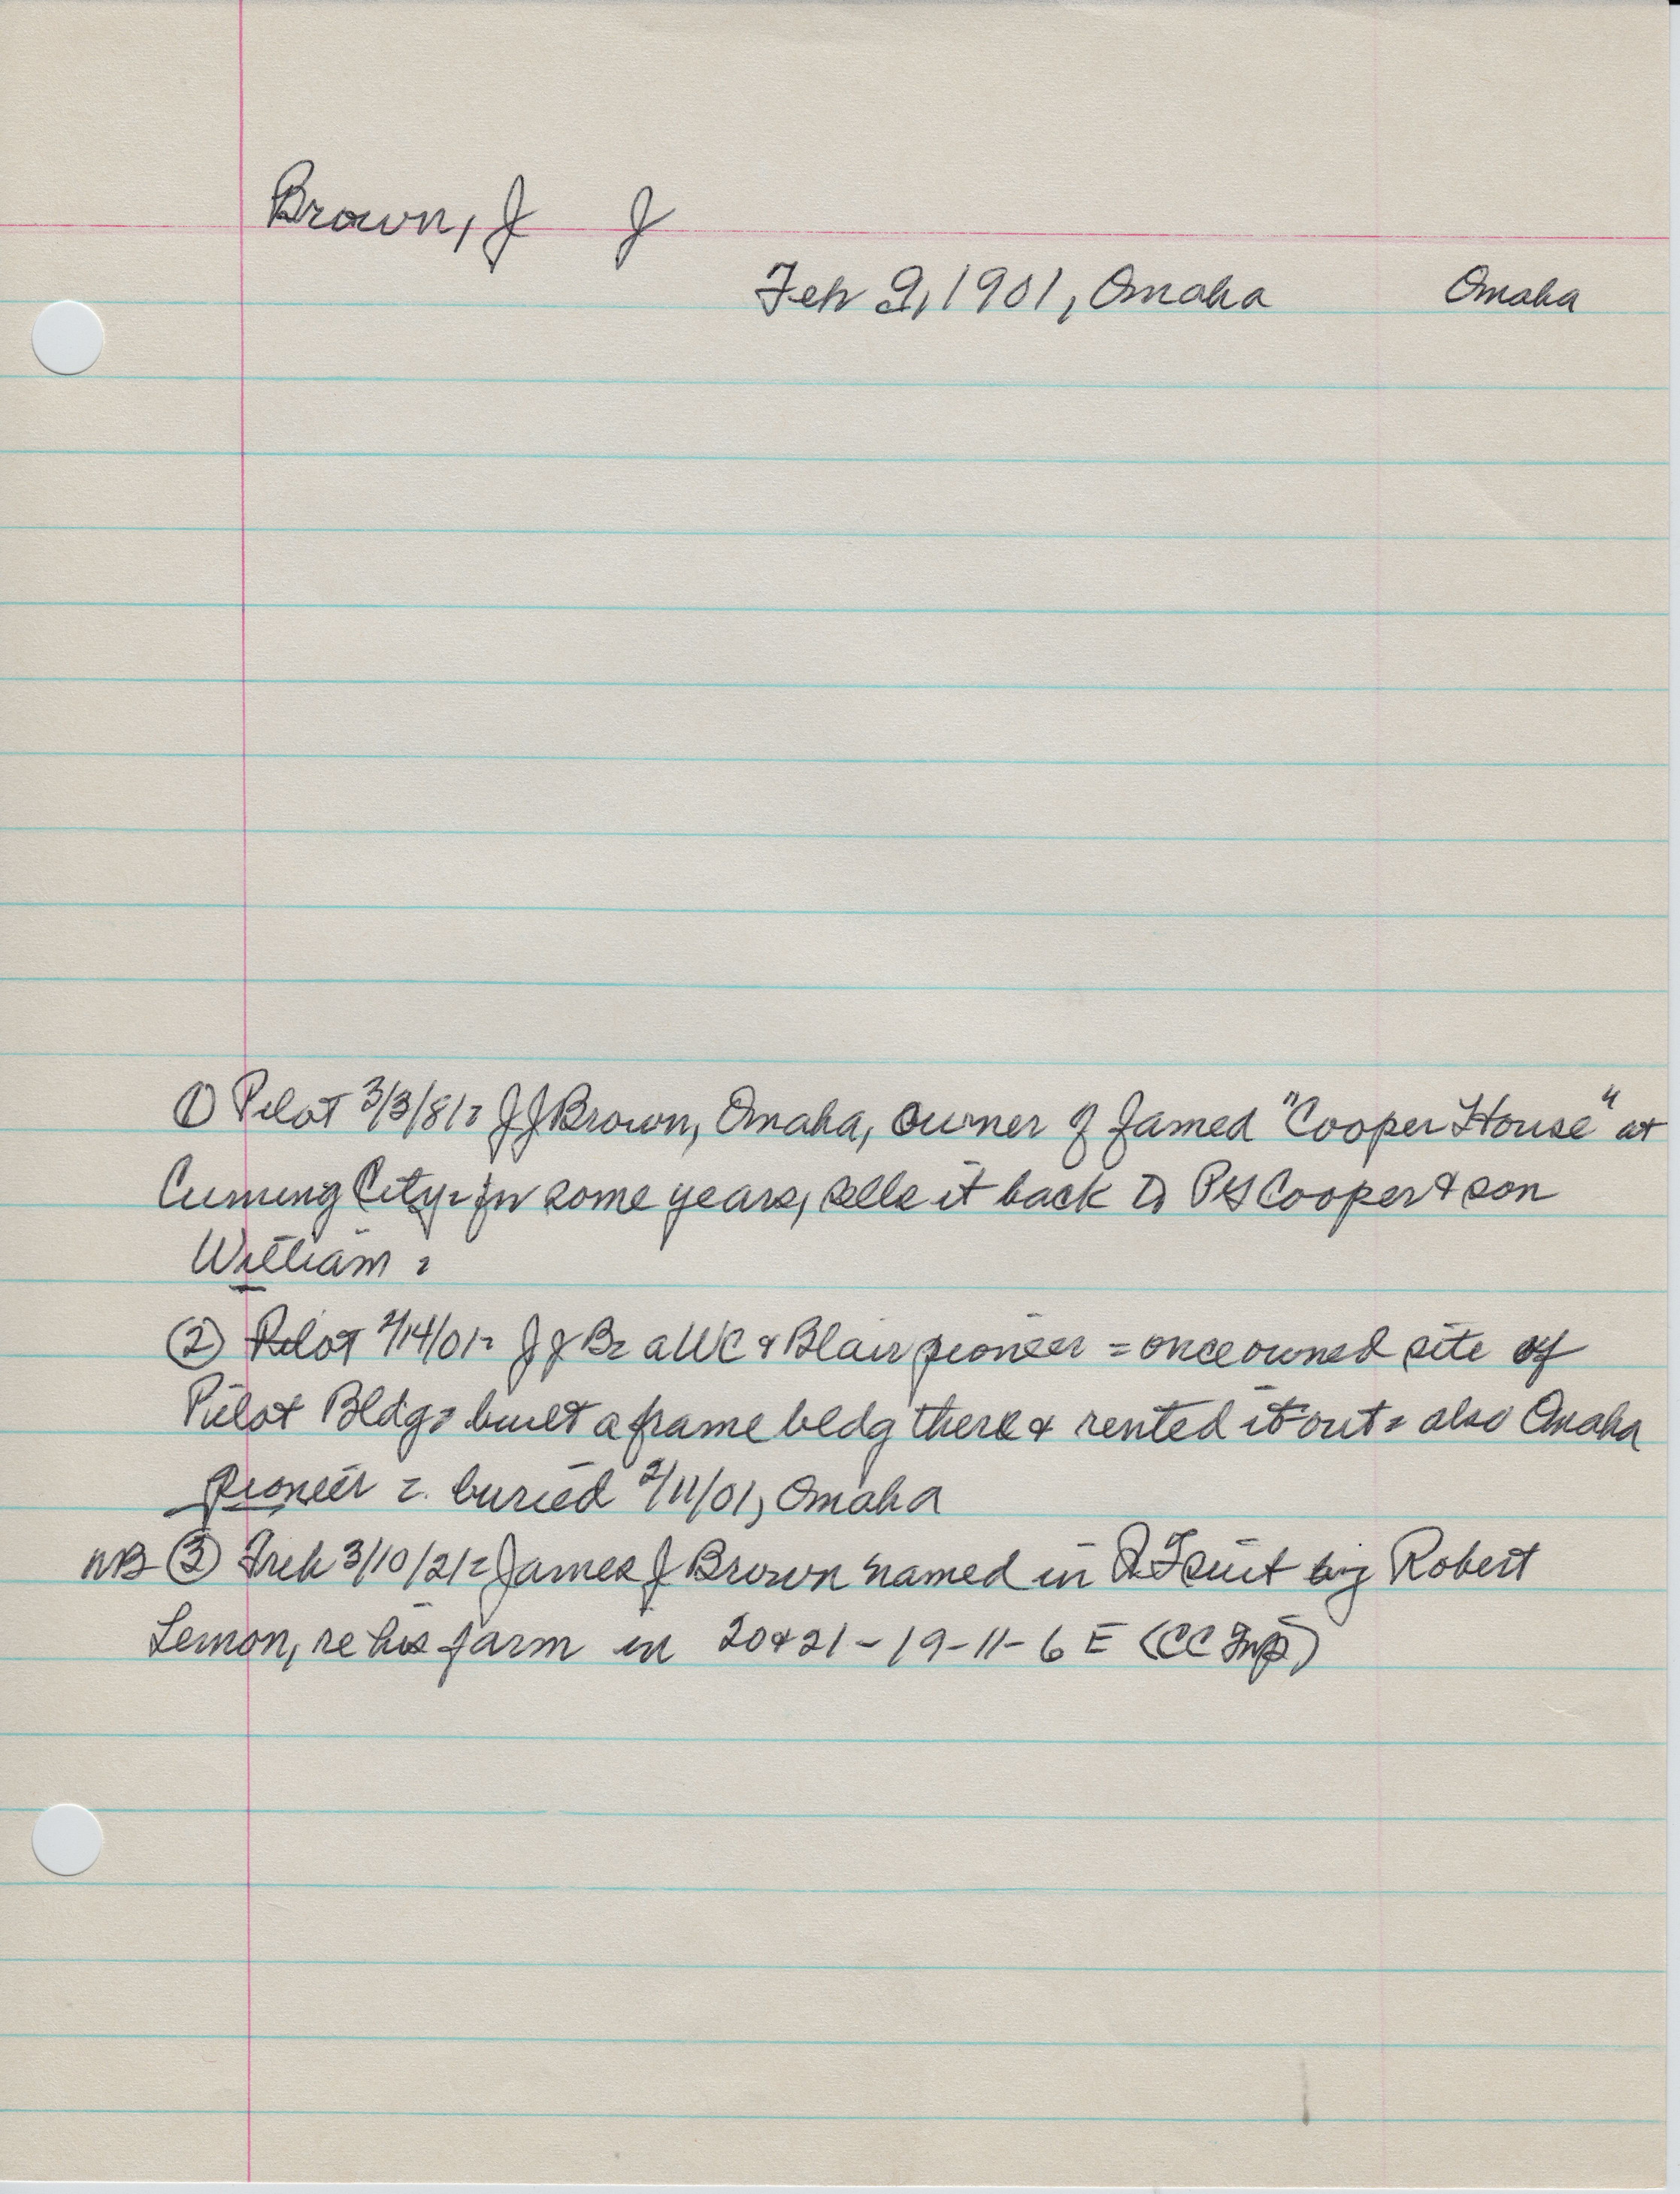 Brown, J J
Feb 9, 1901, Omaha Omaha
① Pilot 3/3/81= JJ Brown, Omaha, owner of famed "Cooper House" at
Cuming City= for some years, sells it back to PG Cooper & son
William =
② Pilot 2/14/01= J J B= a WC & Blair pioneer = once owned site of
Pilot Bldg= built a frame bldg there & rented it out= also Omaha
pioneer =. buried 2/11/01, Omaha
NB ③ Trib 3/10/21= James J Brown named in QT suit by Robert
Lemon, re his farm in 20 & 21-19-11-6 E (CC Twp)